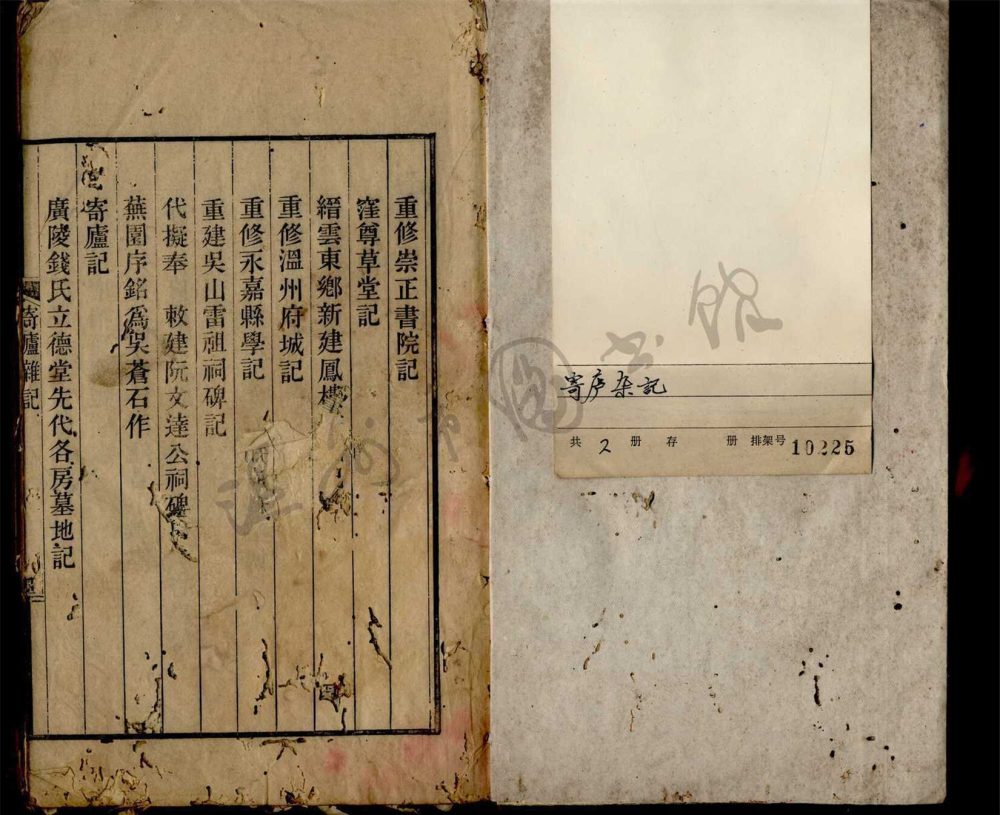 寄庐杂记
共 2 册 存 册 排架号 10225
重修崇正書院記
窪尊草堂記
縉雲東鄉新建鳳樓
重修溫州府城記
重修永嘉縣學記
重建吳山雷祖祠碑記
代擬奉 敕建阮文達公祠碑
蕪園序銘爲吳蒼石作
寄廬記
廣陵錢氏立德堂先代各房墓地記
寄廬雜記